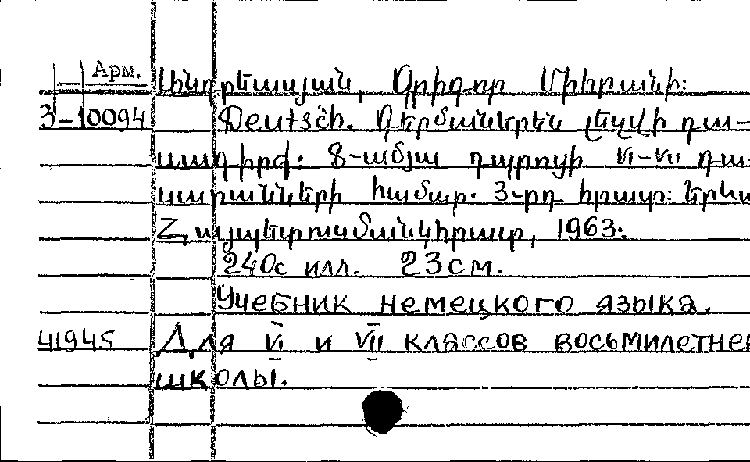 Арм.
Անդրեասյան, Գրիգոր Միհրանի:
3-10094 Deutsch. Գերմաներեն լեզվի դա-
սագիրք: 8-ամյա դպրոցի VI-VII դա-
սարանների համար. 3-րդ հրատ: Երևա
Հայպետուսմանկհրատ, 1963:
240с илл. 23см.
Учебник немецкого языка.
41945 Для VI и VII классов восьмилетней
школы.